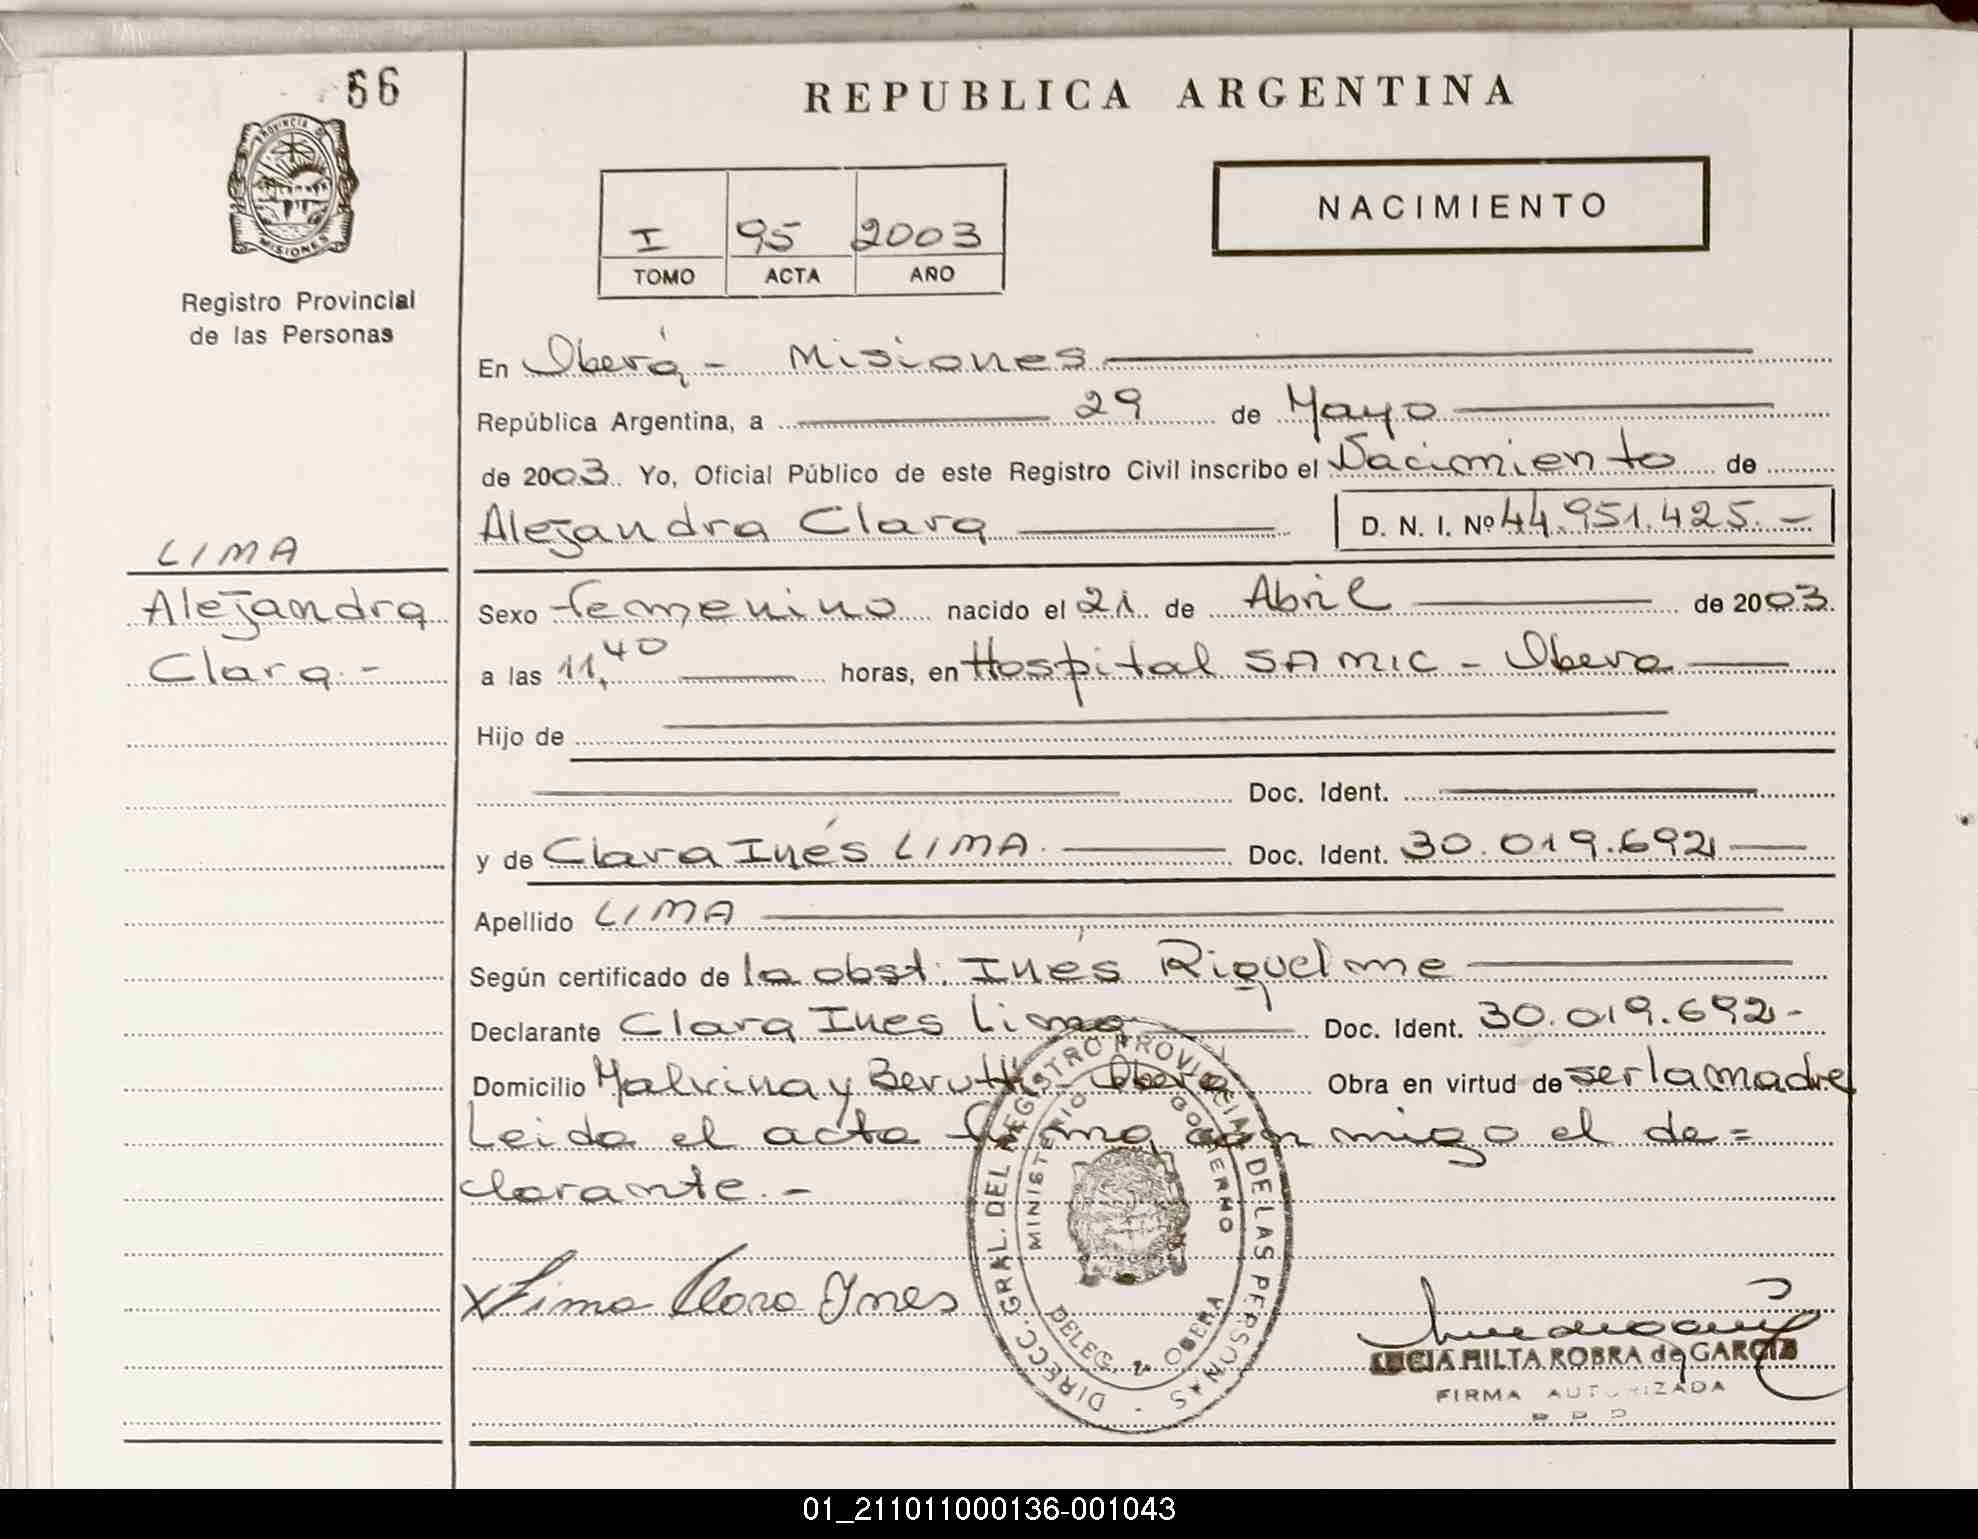 66
PROVINCIA DE
MISIONES
Registro Provincial
de las Personas
LIMA
Alejandra
Clara.-
REPUBLICA ARGENTINA
I 95 2003
TOMO ACTA AÑO
NACIMIENTO
En Oberá - Misiones
República Argentina, a 29 de Mayo
de 2003. Yo, Oficial Público de este Registro Civil inscribo el Nacimiento de
Alejandra Clara D. N. I. Nº 44.951.425.-
Sexo femenino nacido el 21 de Abril de 2003.
a las 11,40 horas, en Hospital SAMIC - Obera
Hijo de
Doc. Ident.
y de Clara Inés LIMA. Doc. Ident. 30.019.692
Apellido LIMA
Según certificado de la obst: Inés Riquelme
Declarante Clara Ines Lima Doc. Ident. 30.019.692-
Domicilio Malvina y Berutti - Obera Obra en virtud de ser la madre
Leida el acta firma con migo el de=
clarante.-
X Lima Clara Ines
DIRECC. GRAL. DEL REGISTRO PROVINCIAL DE LAS PERSONAS -
MINISTERIO GOBIERNO
DELEG. OBERA
LUCIA HILTA ROBRA de GARCIA
FIRMA AUTORIZADA
01_211011000136-001043